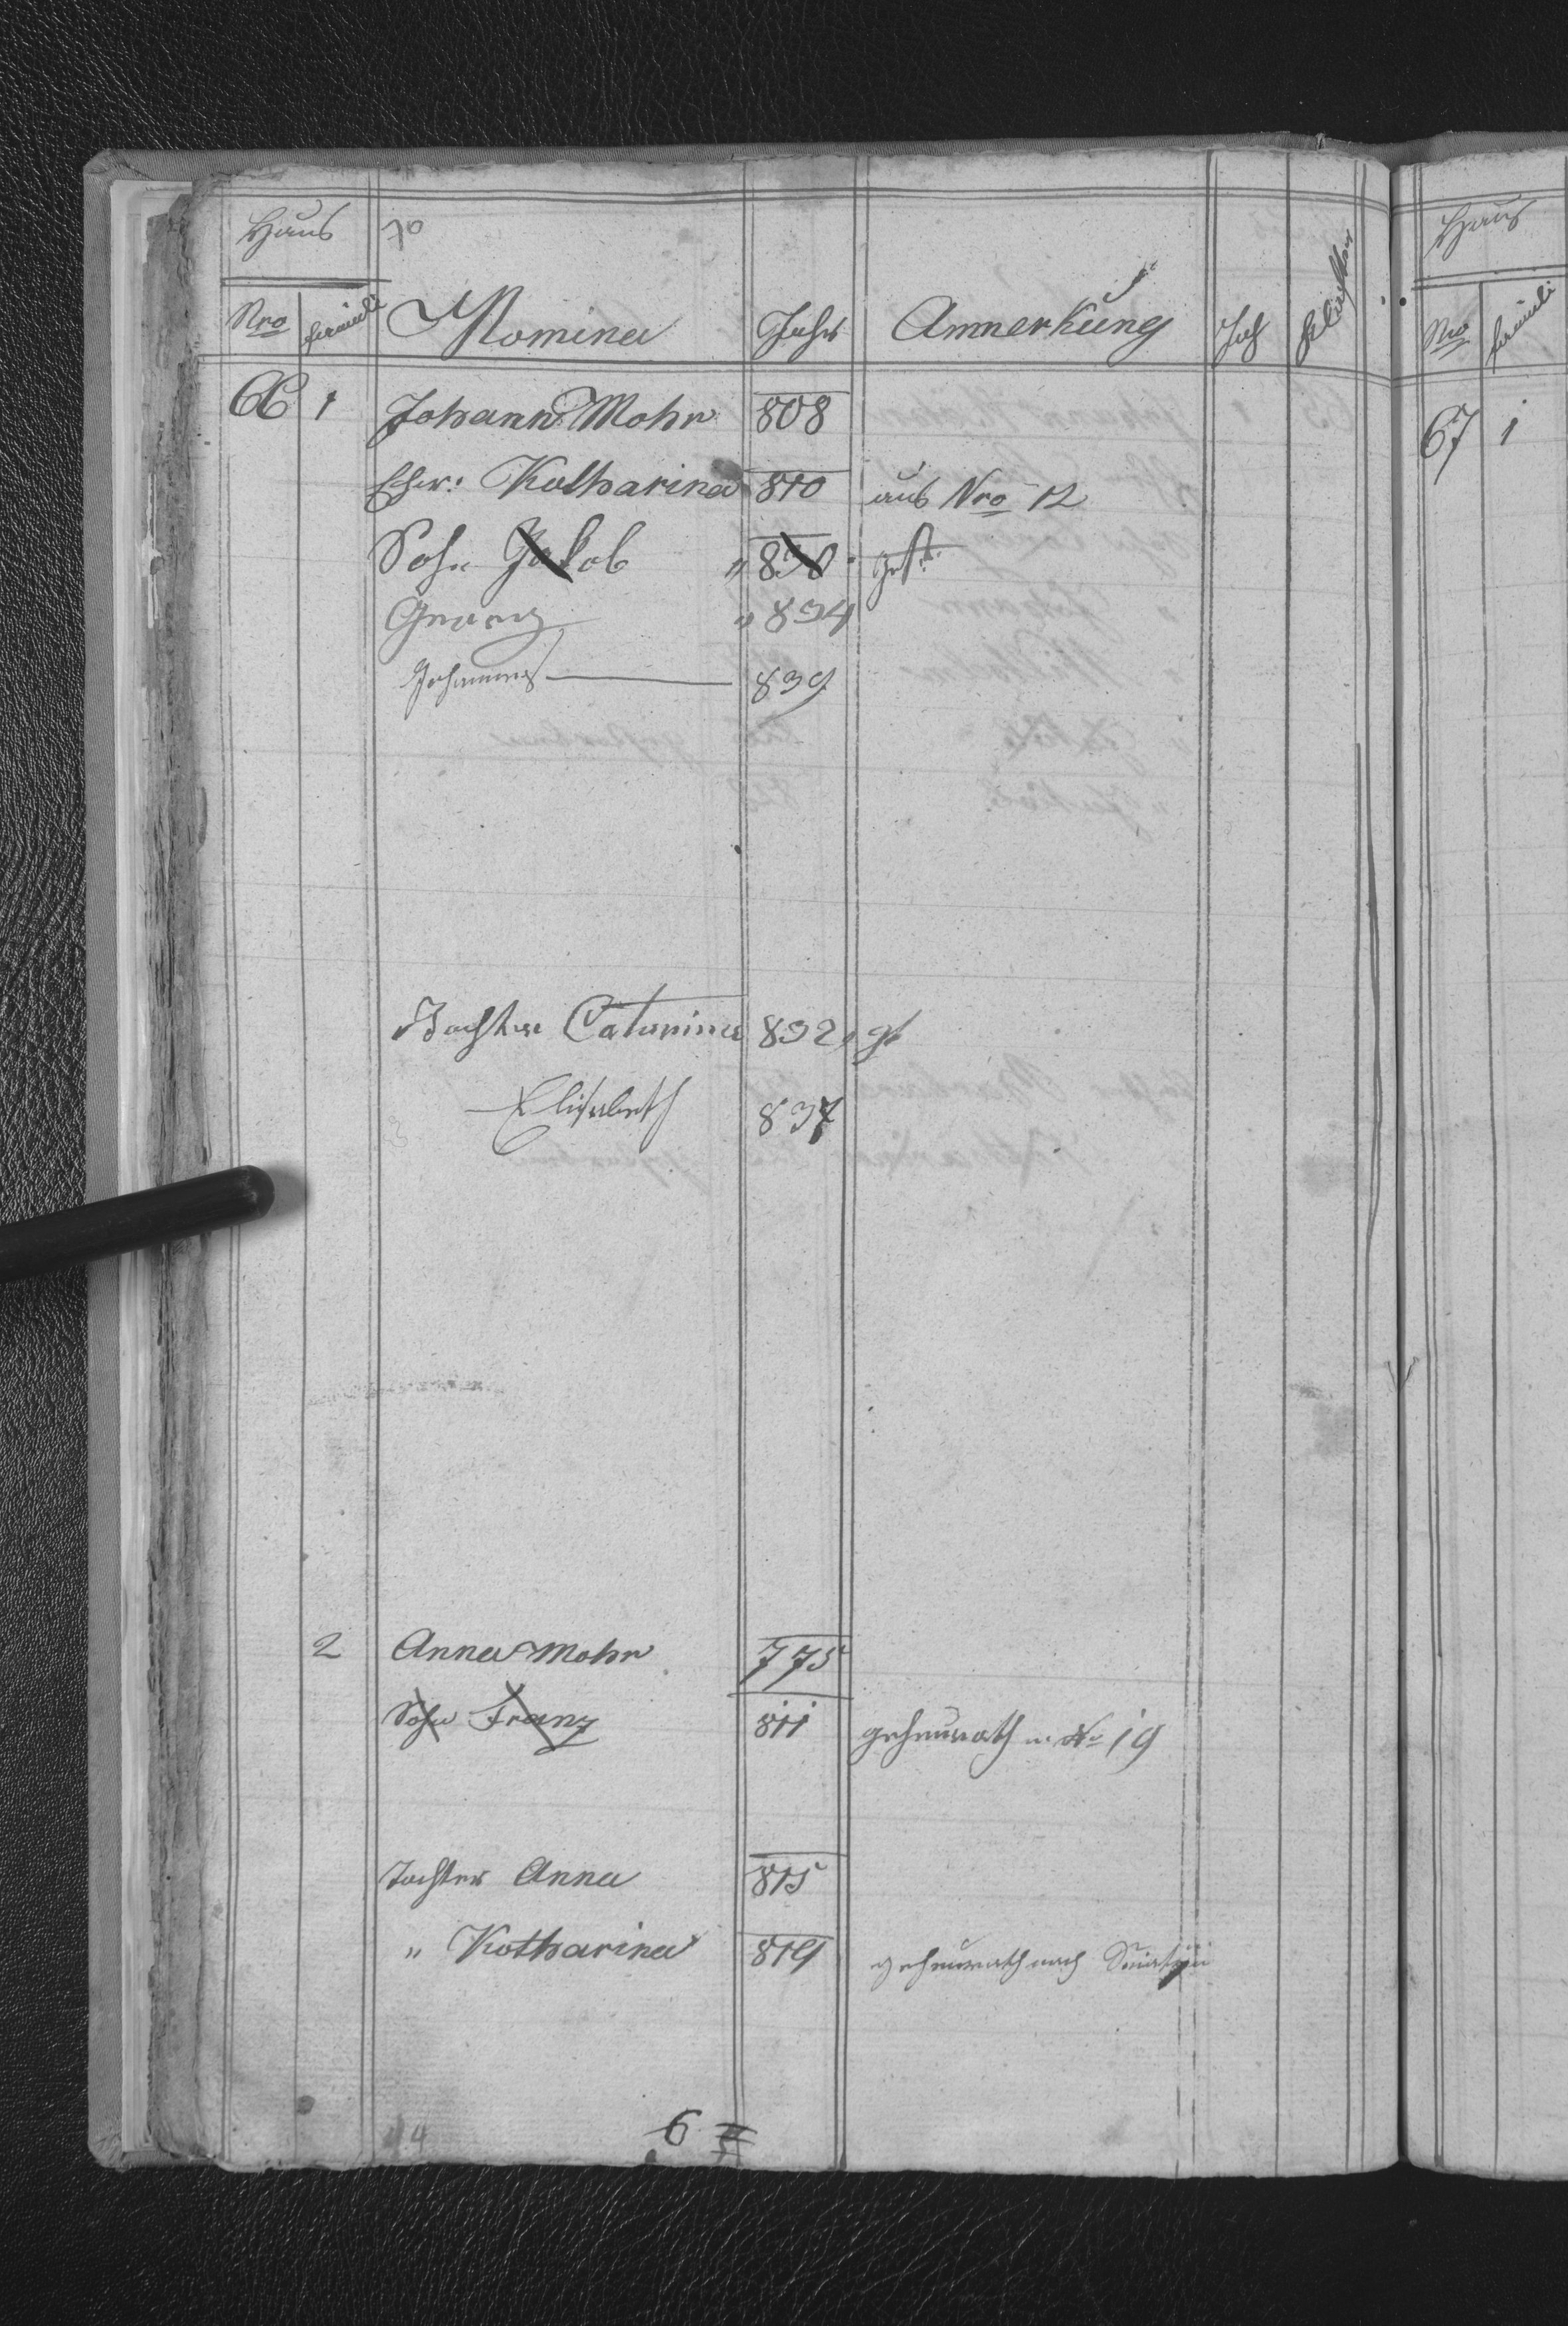 Haus 70
Nro familie Nomina Jahr Anmerkung Joch Klafter
66 1 Johann Mohr 808
Ehew: Katharina 810 aus Nro 12
Sohn Jakob " 830 gest:
Georg " 834
Johannes 839
Tochter Catarina 832 gst
Elisabeth 837
2 Anna Mohr 775
Sohn Franz 811 geheurath in No 19
Tochter Anna 815
" Katharina 819 geheurath nach
44 6
Haus
Nro familie
67 1